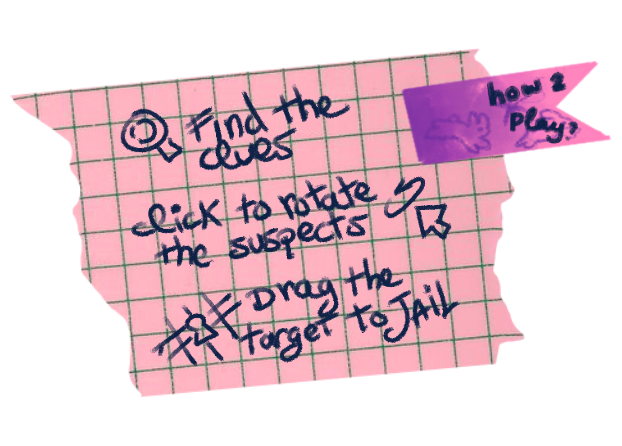 how 2
play?
Find the
clues
click to rotate
the suspects
Drag the
target to JAIL